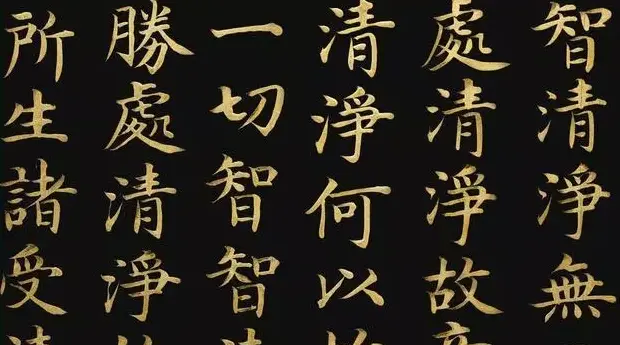 智清淨無
處清淨故
清淨何以
一切智智
勝處清淨
所生諸受